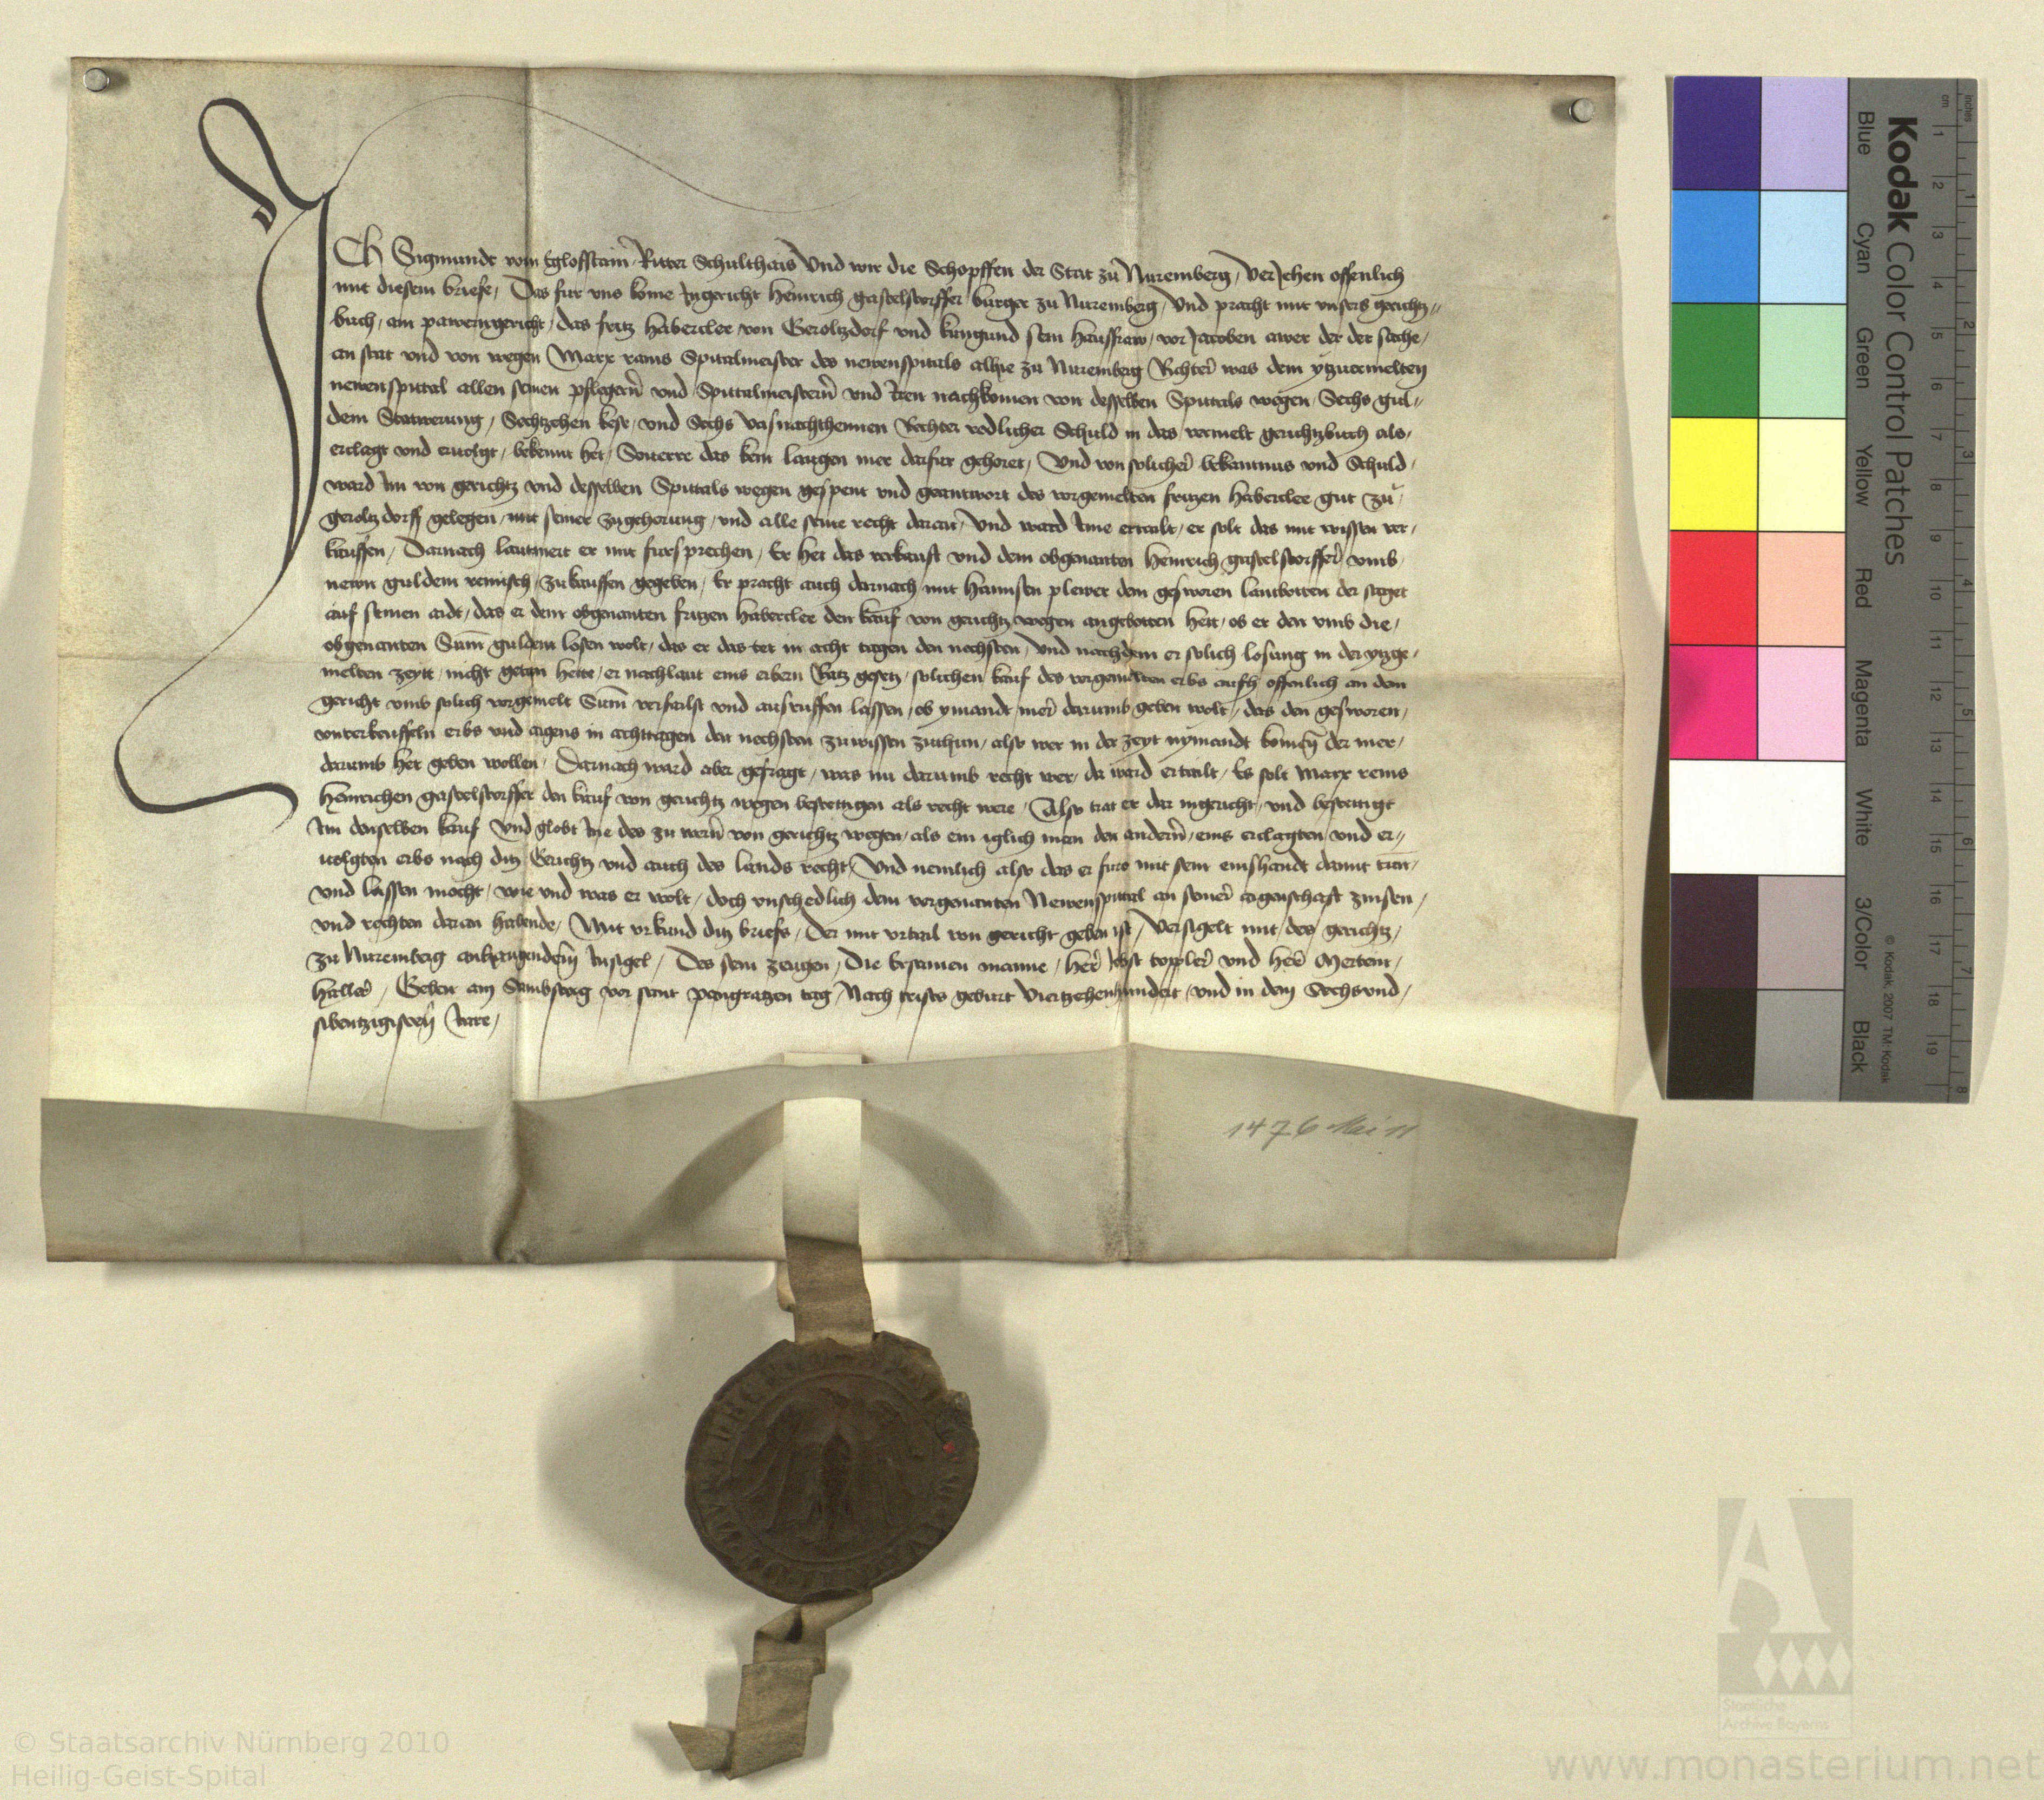 ICh Sigmundt vom Egloffstain Ritter Schulthais Und wir die Schopffen der Stat zu Nuremberg, Verjehen offenlich
mit diesem briefe, Das fur vns kome Ingericht Heinrich gastelstorffer burger zu Nuremberg, Und pracht mit vnsers gerichtz
buch, am pawerngericht, das fritz Haberclee von Geroltzdorf vnd kungund sein hausfraw, vor Jacoben awer der der sache,
an stat vnd von wegen Marx rams Spitalmeister des newenspitals alhie zu Nuremberg Richter was dem ytzuermelten
newenspital allen seinen pflegern vnd Spitalmeistern vnd Iren nachkomen von desselben Spitals wegen, Sechs gul
dem Statwerung, Sechtzehen kese, vnd Sechs vasnachthennen Rechter redlicher Schuld in das vermelt gerichtzbuch als,
erclagt vnd ervolgt, bekennt het, Souerre das kein laugen mer dafur gehoret, Und von solicher bekantnus vnd Schuld,
ward Im von gerichtz vnd desselben Spitals wegen gespent vnd geantwort des vorgemelten fritzen haberclee gut zu,
geroltzdorff gelegen, mit seiner zugehorung, vnd alle seine recht daran, Und ward Ime erteilt, er solt das mit wissen ver,
kauffen, Darnach lautmert er mit fursprechen, Er het das verkauft vnd dem obgenanten Heinrich gastelstorffer vmb,
newn guldem reinisch, zukauffen gegeben, Er pracht auch darnach mit hannsen plewer dem gesworen lantbotten der saget
auf seinen aidt, das er dem obgenanten fritzen haberclee den kauf von gerichtz wegen angebotten hett, ob er den vmb die,
obgenanten Sum guldem losen wolt, das er das tet in acht tagen den nechsten, Und nachdem er solich losung in der ytzge,
melten zeytt, nicht getan hette, er nachlaut eins erbern Ratz gesetz, solichen kauf des vorgemelten erbs auch offenlich an dem
gericht vmb solich vorgemelt Sum verfailst vnd ausruffen lassen, ob ymandt mer darumb geben wolt, das den gesworen,
vnterkeuffeln erbs vnd aigens in achttagen den nechsten zuwissen zuthun, also wer in der zeyt nymandt komen der mer,
darumb het geben wollen, Darnach ward aber gefragt, was nu darumb recht wer, da ward erteilt, Es solt Marx rems
Heinrichen gastelstorffer den kauf von gerichtz wegen bestettigen als recht were, Also trat er dar ingericht, vnd bestettigt
Im denselben kauf Und globt Ine des zu wern von gerichtz wegen, als ein iglich man den andern, eins erclagten vnd er
uolgten erbs nach ditz Gerichtz vnd auch des lands recht, Und nemlich also das er furo mit sein einshandt damit tun,
vnd lassen mocht, wie vnd was er wolt, doch vnschedlich dem vorgenanten Newenspital an seiner aigenschaft zinsen,
vnd rechten daran habende, Mit vrkund ditz briefs, Der mit vrteil von gericht geben ist, Versigelt mit des gerichtz,
zu Nuremberg anhangendem Insigel, Des sein zeugen, Die Ersamen manne, her Jobst toppler vnd her Merteni,
Haller, Geben am Sambstag vor sant pangratzen tag, Nach cristi geburt Viertzehenhundert, vnd in dem Sechsvnd,
sibentzigisten Jare,
1476 Mai 11
Kodak Color Control Patches
Blue Cyan Green Yellow Red Magenta White 3/Color Black
© Kodak, 2007 TM: Kodak
inches 1 2 3 4 5 6 7 8
cm 1 2 3 4 5 6 7 8 9 10 11 12 13 14 15 16 17 18 19
Staatliche
Archive Bayerns
© Staatsarchiv Nürnberg 2010
Heilig-Geist-Spital
www.monasterium.net